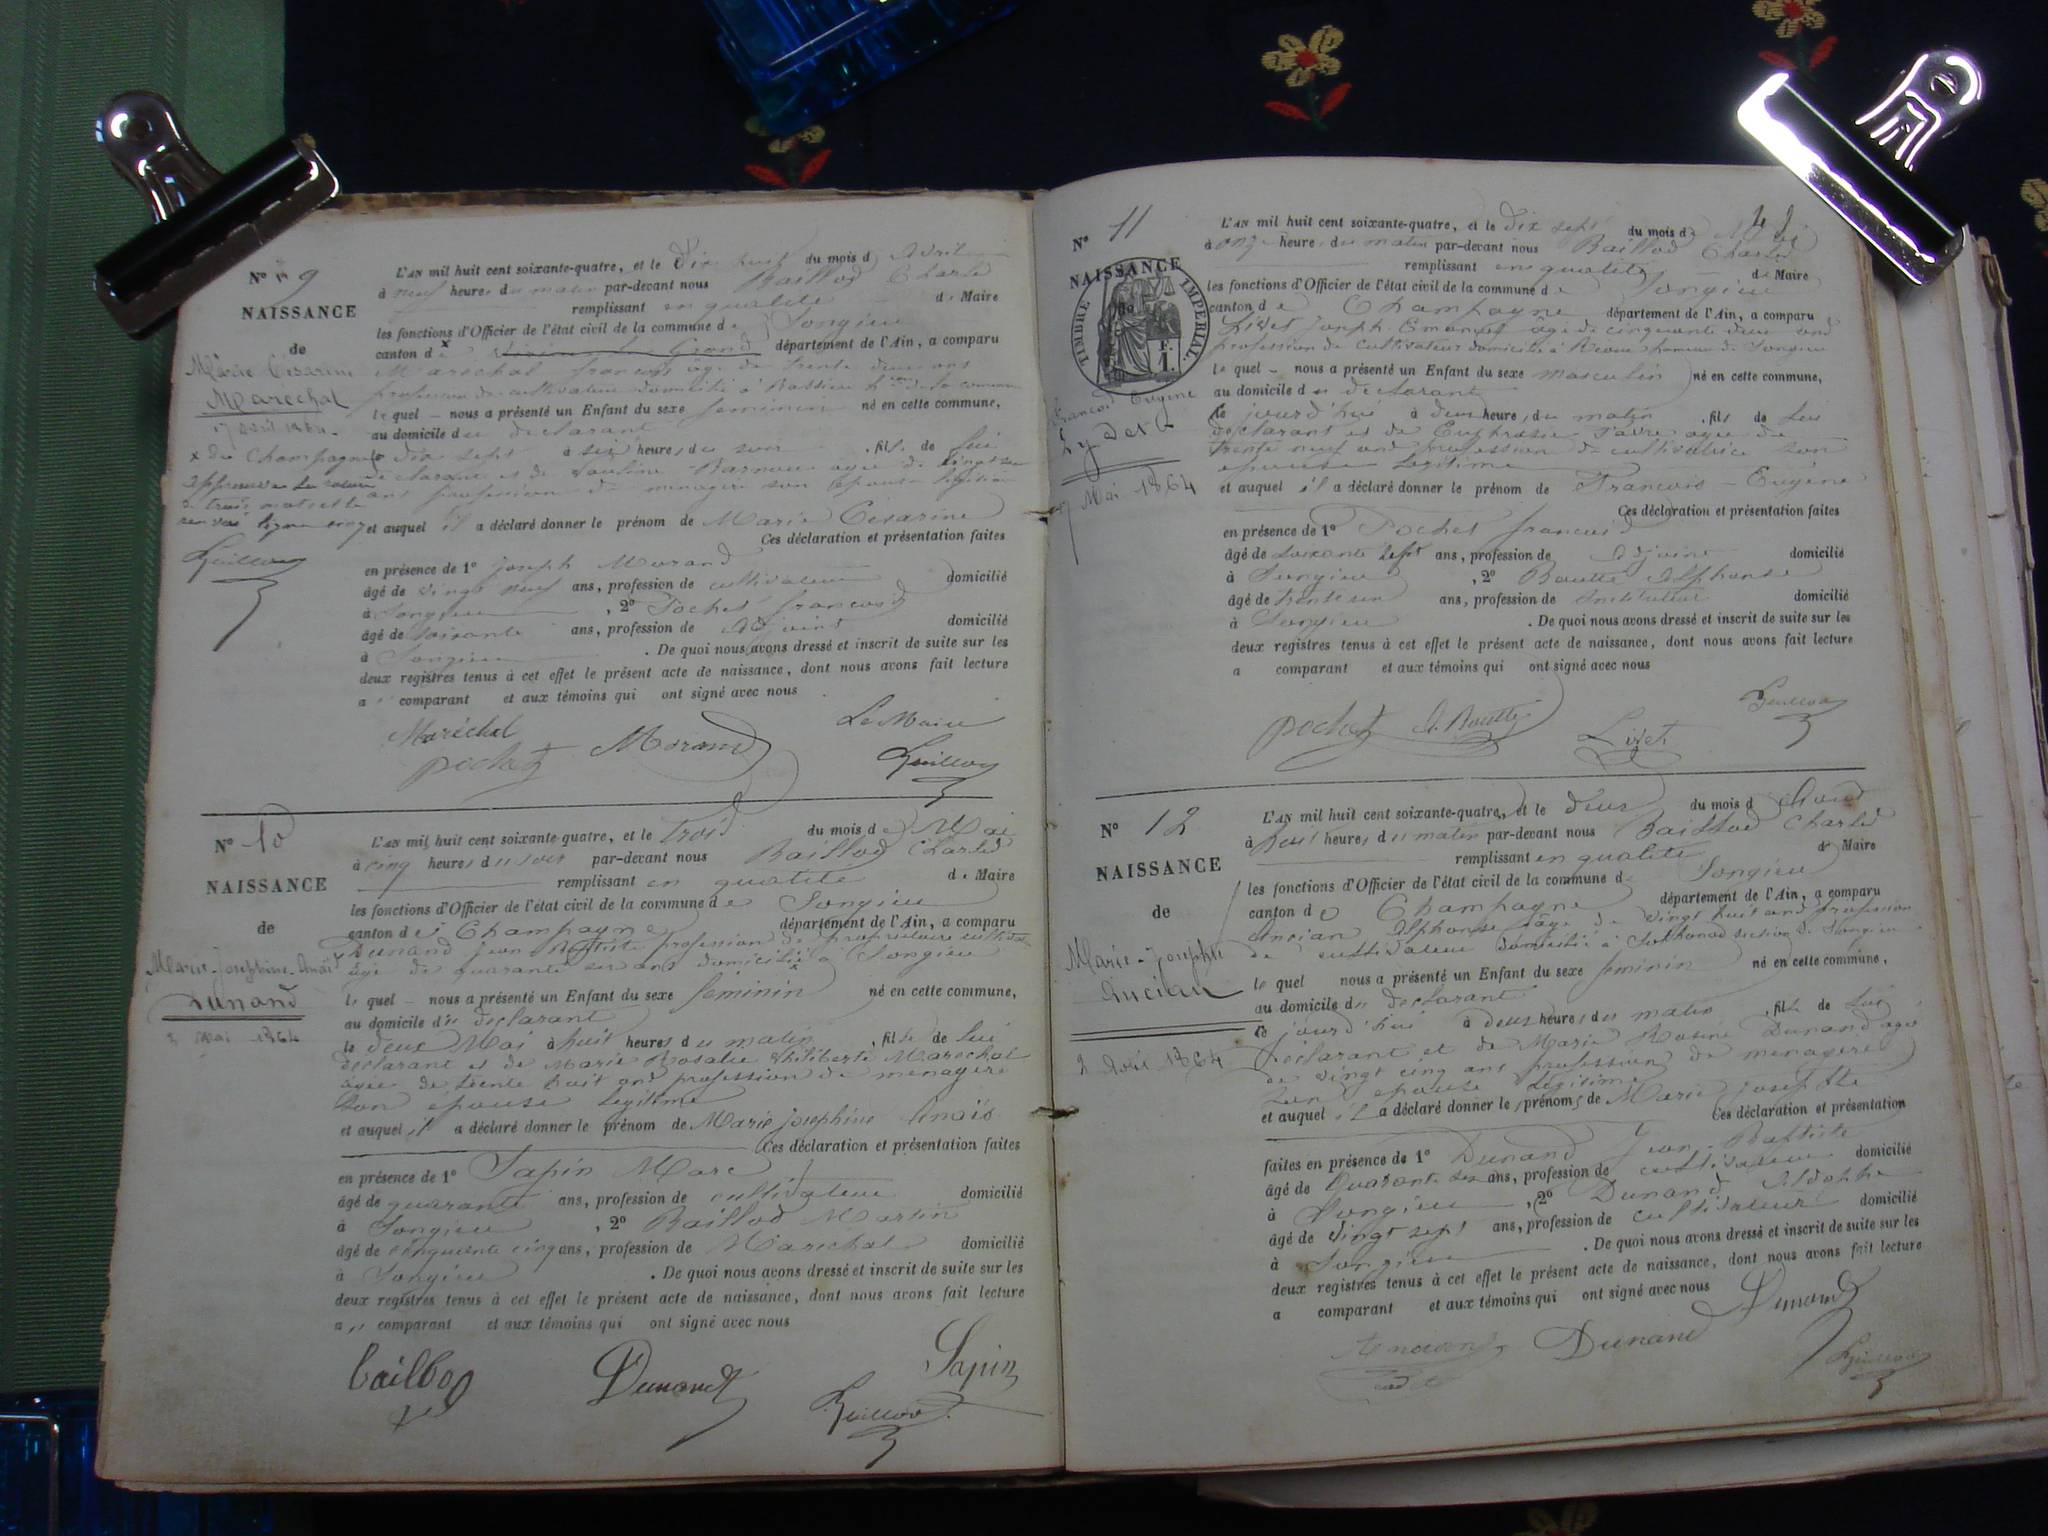 N° 9
NAISSANCE
de
Marie Césarine
Maréchal
17 avril 1864.
x de Champagne
trois mots
L'AN mil huit cent soixante-quatre, et le dix huit du mois d Avril
à neuf heures du matin par-devant nous Baillod Charles
remplissant en qualité de Maire
les fonctions d'Officier de l'état civil de la commune de Songieu
canton de département de l'Ain, a comparu
Maréchal françois âgé de trente deux ans
profession de cultivateur domicilié à
le quel – nous a présenté un Enfant du sexe feminin né en cette commune,
au domicile du declarant
le dix sept à six heures du soir, fille de lui
declarant et de agée de vingt
ans profession de menagère son épouse légitime
et auquel il a déclaré donner le prénom de Marie Césarine
Ces déclaration et présentation faites
en présence de 1° joseph Morand
âgé de vingt neuf ans, profession de cultivateur domicilié
à Songieu, 2° Pochet françois
âgé de soixante ans, profession de Adjoint domicilié
à Songieu. De quoi nous avons dressé et inscrit de suite sur les
deux registres tenus à cet effet le présent acte de naissance, dont nous avons fait lecture
a comparant et aux témoins qui ont signé avec nous
Maréchal
pochet Morand
Le Maire
N° 10
NAISSANCE
de
Marie-Josephine-Anaïs
Dunand
2 Mai 1864
L'AN mil huit cent soixante-quatre, et le trois du mois de Mai
à cinq heures du soir par-devant nous Baillod Charles
remplissant en qualité de Maire
les fonctions d'Officier de l'état civil de la commune de Songieu
canton de Champagne département de l'Ain, a comparu
Dunand jean Baptiste profession de propriétaire
âgé de quarante six ans domicilié à Songieu
le quel – nous a présenté un Enfant du sexe feminin né en cette commune,
au domicile du declarant
le deux Mai à huit heures du matin, fille de lui
declarant et de Marie Rosalie Philiberte Marechal
agée de trente huit ans profession de menagere
son épouse legitime
et auquel il a déclaré donner le prénom de Marie josephine Anaïs
Ces déclaration et présentation faites
en présence de 1° Sapin Marc
âgé de quarante ans, profession de cultivateur domicilié
à Songieu, 2° Baillod Martin
âgé de cinquante cinq ans, profession de Marechal domicilié
à Songieu. De quoi nous avons dressé et inscrit de suite sur les
deux registres tenus à cet effet le présent acte de naissance, dont nous avons fait lecture
a comparant et aux témoins qui ont signé avec nous
Dunand Sapin
N° 11
NAISSANCE
de
TIMBRE IMPERIAL.
F.
1.
François Eugène
17 Mai 1864
L'AN mil huit cent soixante-quatre, et le dix sept du mois de Mai
à onze heures du matin par-devant nous Baillod Charles
remplissant en qualité de Maire
les fonctions d'Officier de l'état civil de la commune de Songieu
canton de Champagne département de l'Ain, a comparu
Livet Joseph Emanuel âgé de cinquante deux ans
profession de cultivateur domicilié à hameau de Songieu
le quel – nous a présenté un Enfant du sexe masculin né en cette commune,
au domicile du declarant
le jourd'hui à deux heures du matin, fils de lui
declarant et de Euphrasie agée de
trente neuf ans profession de cultivatrice son
épouse legitime
et auquel il a déclaré donner le prénom de François-Eugène
Ces déclaration et présentation faites
en présence de 1° Pochet françois
âgé de soixante sept ans, profession de Adjoint domicilié
à Songieu, 2° Boutte Alphonse
âgé de trente un ans, profession de Instituteur domicilié
à Songieu. De quoi nous avons dressé et inscrit de suite sur les
deux registres tenus à cet effet le présent acte de naissance, dont nous avons fait lecture
a comparant et aux témoins qui ont signé avec nous
pochet A. Boutte Livet
N° 12
NAISSANCE
de
Marie-Josephte
Ancian
2 Août 1864
L'AN mil huit cent soixante-quatre, et le deux du mois d'Aout
à huit heures du matin par-devant nous Baillod Charles
remplissant en qualité de Maire
les fonctions d'Officier de l'état civil de la commune de Songieu
canton de Champagne département de l'Ain, a comparu
Ancian Alphonse âgé de vingt huit ans profession
de cultivateur domicilié à section de Songieu
le quel nous a présenté un Enfant du sexe feminin né en cette commune,
au domicile du declarant
le jourd'hui à deux heures du matin, fille de lui
declarant et de Marie Rosine Dunand agée
de vingt cinq ans profession de menagere
son epouse légitime
et auquel il a déclaré donner le prénoms de Marie josephte
Ces déclaration et présentation
faites en présence de 1° Dunand Jean-Baptiste
âgé de quarante six ans, profession de cultivateur domicilié
à Songieu, 2° Dunand Adolphe
âgé de vingt sept ans, profession de cultivateur domicilié
à Songieu. De quoi nous avons dressé et inscrit de suite sur les
deux registres tenus à cet effet le présent acte de naissance, dont nous avons fait lecture
a comparant et aux témoins qui ont signé avec nous
Dunand
Dunand